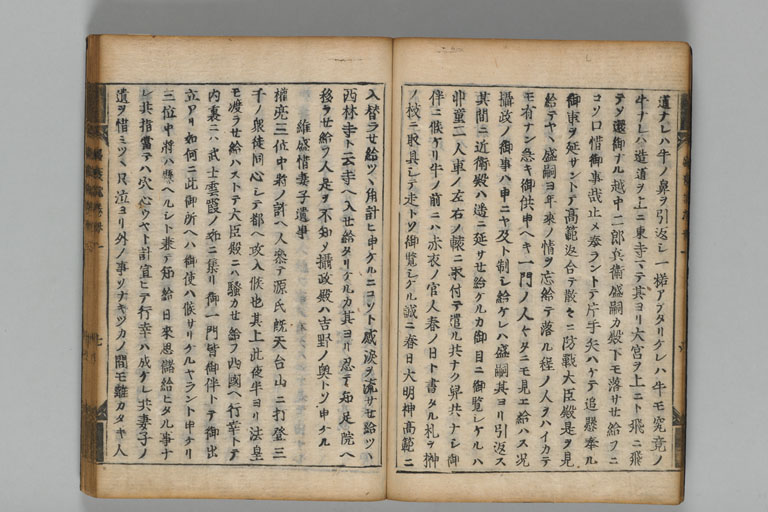 道ナレハ牛ノ鼻ヲ引返シ一揺アフタリケレハ牛モ究竟ノ
牛ナレハ造道ヲ上ニ東寺マテ其ヨリ大宮ヲ上ニト飛ニ飛
テソ還御ナル越中二郎兵衛盛嗣カ殿下モ落サセ給フニ
コソ口惜御事哉止メ奉ラントテ片手矢ハケテ追懸奉ル
御車ヲ延サントテ高範返合テ散々ニ防戦大臣殿是ヲ見
給テヤヽ盛嗣年来ノ情ヲ忘給テ落ル程ノ人ヲハイカテ
モ有ナン急キ御供申ヘキ一門ノ人々タニモ見エ給ハス況
攝政ノ御事ハ申ニヤ及ト制シ給ケレハ盛嗣其ヨリ引返ス
其間ニ近衛殿ハ遥ニ延サセ給ケルカ御目ニ御覧シケルハ
丱童二人車ノ左右ノ轅ニ取付テ遣ル共ナク舁共ナシ御
伴ニ候ケリ牛ノ前ニハ赤衣ノ官人春ノ日ト書タル札ヲ榊
ノ枝ニ取具シテ走トソ御覧シケル誠ニ春日大明神高範ニ
入替ラセ給ツヽ角計ヒ申ケルニコソト感涙ヲ流サセ給ツヽ
西林寺ト云寺ヘ入セ給タリケルカ其ヨリ忍テ知足院ヘ
移ラせ給フ人是ヲ不知ソ攝政殿ハ吉野ノ奥トソ申ケル
維盛惜妻子遺事
權亮三位中將ノ許ヘ人參テ源氏既天台山ニ打登三
千ノ衆徒同心シテ都ヘ攻入候也其上此夜半ヨリ法皇
モ渡ラセ給ハストテ大臣殿ニハ騒カセ給フ西國ヘ行幸トテ
内裏ニハ武士雲霞ノ如ニ集リ御一門皆御伴トテ御出
立アリ如何ニ此御所ヘハ御使ハ候サリケルヤラント申ケリ
三位中將ハ縣ヘルシト兼テ知給日來思儲給ヒタル事ナ
レ共指當テハ穴心ウヤト計宣ヒテ行幸ハ成ケレ共妻子ノ
遺ヲ惜ミツヽ只泣ヨリ外ノ事ソナキツカノ間モ離カタキ人